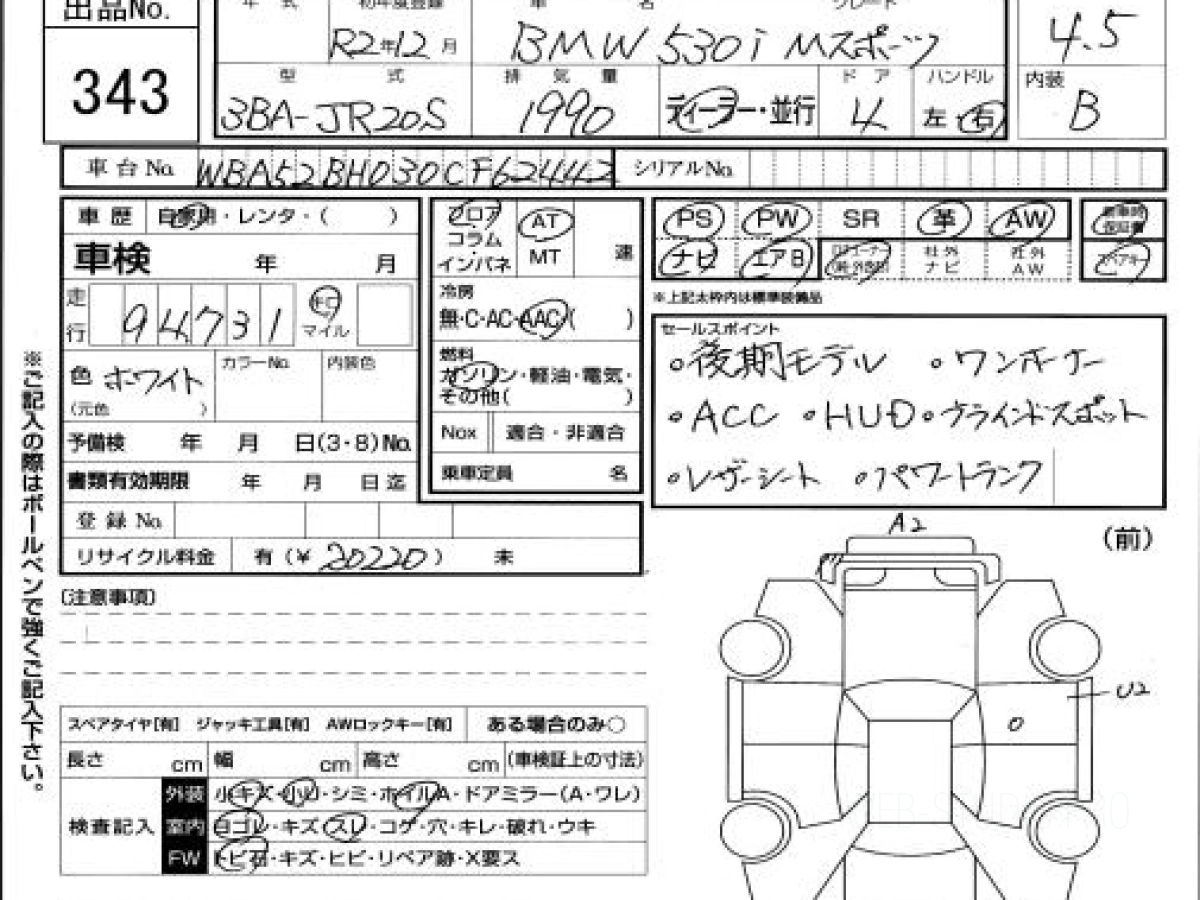 出品No.
343
年 式 初年度登録 車 名 グレード
R2年12月 BMW 530i Mスポーツ 4.5
型 式 排 気 量 ド ア ハンドル 内装
3BA-JR20S 1990 ディーラー・並行 4 左・右 B
車台No. WBA52BH030CF62442 シリアルNo.
車歴 自家用・レンタ・( )
車検 年 月
走行 94731 マイル
色 ホワイト カラーNo. 内装色
(元色 )
予備検 年 月 日(3・8)No.
書類有効期限 年 月 日迄
登録No.
リサイクル料金 有(¥20220) 未
フロア
コラム
インパネ
AT
MT
速
冷房
無・C・AC・AAC( )
燃料
ガソリン・軽油・電気・
その他( )
Nox 適合・非適合
乗車定員 名
PS PW SR 革 AW
ナビ エアB 社外ナビ 社外AW スペアキー
※上記太枠内は標準装備品
セールスポイント
・後期モデル ・ワンオーナー
・ACC ・HUD・ブラインドスポット
・レザーシート ・パワートランク
※ご記入の際はボールペンで強くご記入下さい。
〔注意事項〕
スペアタイヤ[有] ジャッキ工具[有] AWロックキー[有] ある場合のみ○
長さ cm 幅 cm 高さ cm (車検証上の寸法)
検査記入
外装 小キズ・小U・シミ・ホイルA・ドアミラー(A・ワレ)
室内 ヨゴレ・キズ・スレ・コゲ・穴・キレ・破れ・ウキ
FW トビ石・キズ・ヒビ・リペア跡・X要ス
A2
(前)
U2